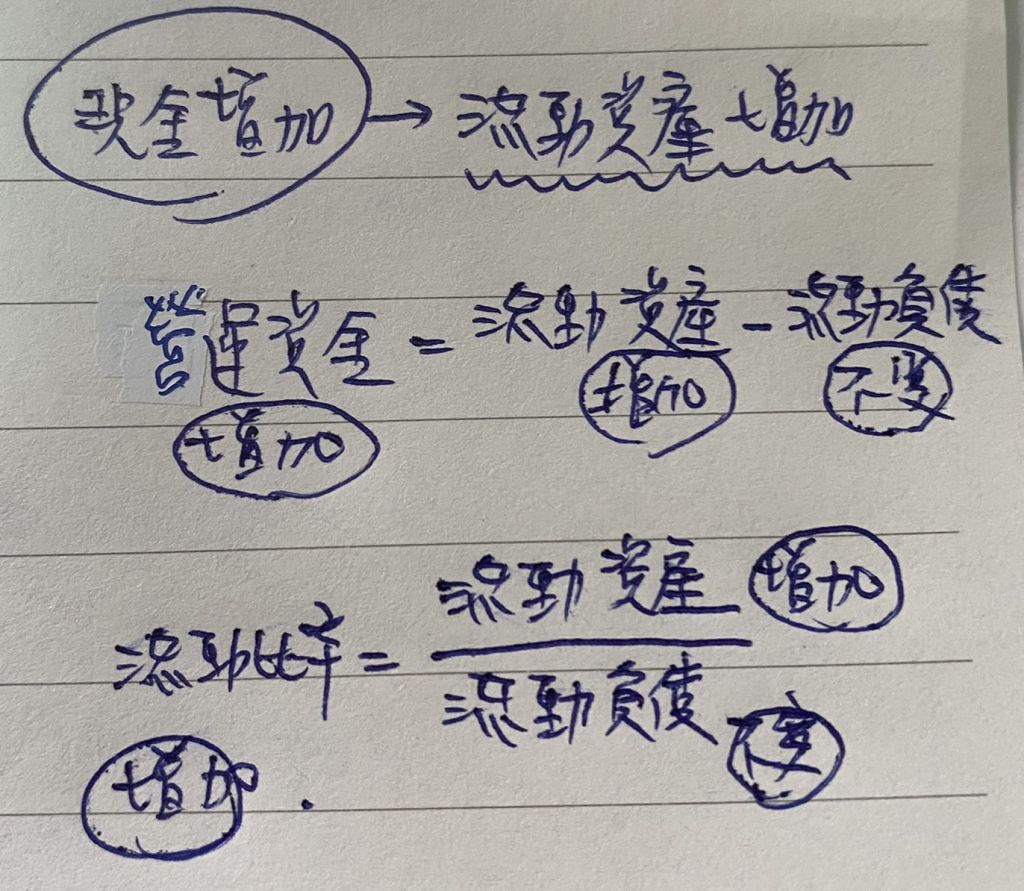 現金增加→流動資產增加
營運資金=流動資產-流動負債
增加 增加 不變
流動資產 增加
流動比率=
流動負債 不變
增加.